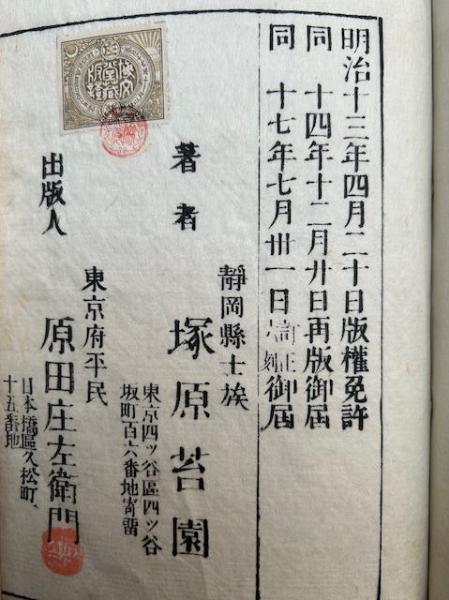 明治十三年四月二十日版權免許
同 十四年十二月廿日再版御届
同 十七年七月卅一日訂正御届
著者
靜岡縣士族
塚原苔園
東京四ッ谷區四ッ谷
坂町百六番地寄留
出版人
東京府平民
原田庄左衛門
日本橋區久松町、
十五番地